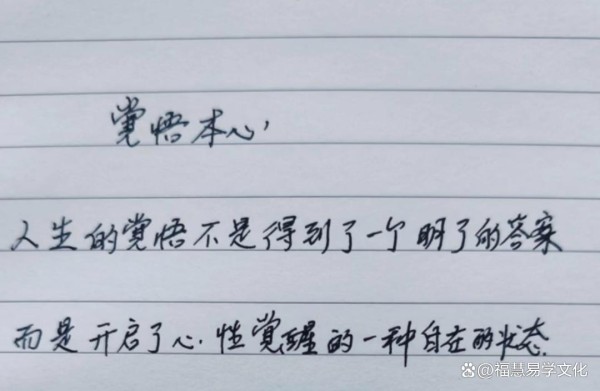 覚悟本心
人生的覚悟不是得到了一个明了的答案
而是开启了心性覚醒的一种自在的状态.
@福慧易学文化